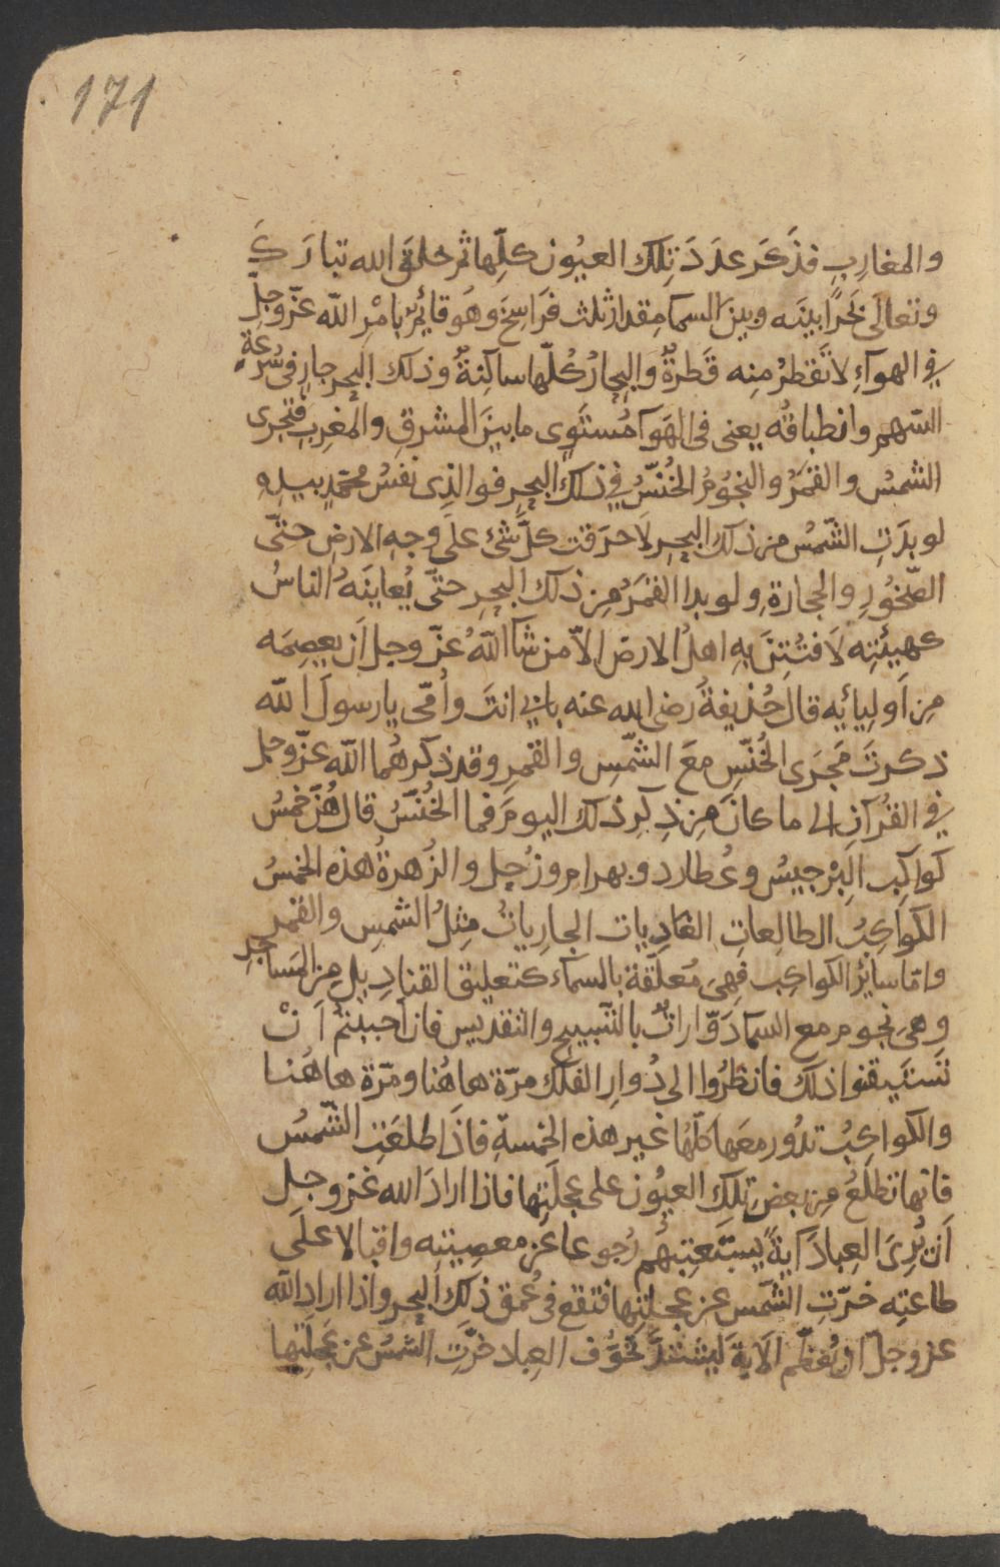 171
والمغارِبِ فذَكَر عدَدَ تِلك العيُون كلِّها ثم خلقَ الله تبارَكَ
وتعالَى بَحرًا بينَه وبين السما مِقدار ثلث فرَاسِخَ وهُو قائمٌ بامْرِ الله عزّ وجلّ
في الهوآءِ لا تَقطرُ مِنه قَطرةٌ والبحارُ كُلّها ساكِنةٌ وذلك البحر جارٍ فى سُرعةِ
السّهم وانطباقُه يعنى فى الهَوآ مُستَوِى ما بينَ المشرقِ والمغرِبِ فتجرى
الشمسُ والقمَرُ والنجُومُ الخُنّسُ في ذلك البحرِ فوالذِى نَفسُ محمّدٍ بيدِهِ
لو بدَتِ الشّمسُ من ذلك البحرِ لاَحرَقت كلّ شئ علَى وجهِ الارضِ حتّى
الصّخُورِ والحجارةِ ولو بدا القمَرُ مِن ذلك البحرِ حتّى يُعاينَهُ الناسُ
كهيئتِه لاَفتُتِنَ بِهِ اهلُ الارضِ الاّ من شآ اللهُ عزّ وجل اَن يعصِمَه
مِن اَولِيائِه قالَ حُذيفةُ رضى الله عنه بابي انتَ واُمّى يا رسولَ الله
ذكرتَ مَجرَى الخُنّسِ معَ الشّمسِ والقمرِ وقد ذكرهُما الله عزّ وجل
في القُرآنِ الى ما كانَ مِن ذِكرِ ذلك اليومَ فما الخُنّسُ قال هُنّ خمسُ
كواكِبِ البِرْجيسُ وعُطارد وبهرام وزُحِل والزُهرةُ هذه الخمسُ
الكواكِبُ الطالِعاتِ الغادِيات الجارِياتُ مِثلُ الشمسِ والقمر
وامّا سائرُ الكواكِب فهِىَ مُعلّقة بالسماء كتعلِيق القنادِيلِ مِن المَساجِدِ
وهىَ نجوم مع السمآ دَوّاراتٌ بالتّسبِيحِ والتقديس فان اَحببتمْ اَنْ
تَستَيقنوا ذلك فانظرُوا الى دُوارِ الفلَك مرّة هاهُنا ومَرّة هاهُنا
والكواكِبُ تدُور معَها كلّها غير هذه الخمسةِ فاذَا طلعَتِ الشّمسُ
فانها تطلَعُ مِن بعضِ تِلكِ العيُون على عجلَتِها فاذا ارادَ الله عز وجل
اَن يُرِىَ العِبادَ آيةً يستَعتِبهُم رُجوعا عَن معصيتِه واقبالا علَى
طاعتِه خرّتِ الشّمس عن عجلتِها فتقع فى عُمق ذلك البحر واذا اراد الله
عز وجلّ ان يُعَظّم الآيةَ ليشتدَّ تخوُّف العِباد خرّتِ الشمسُ عن عَجلَتِها